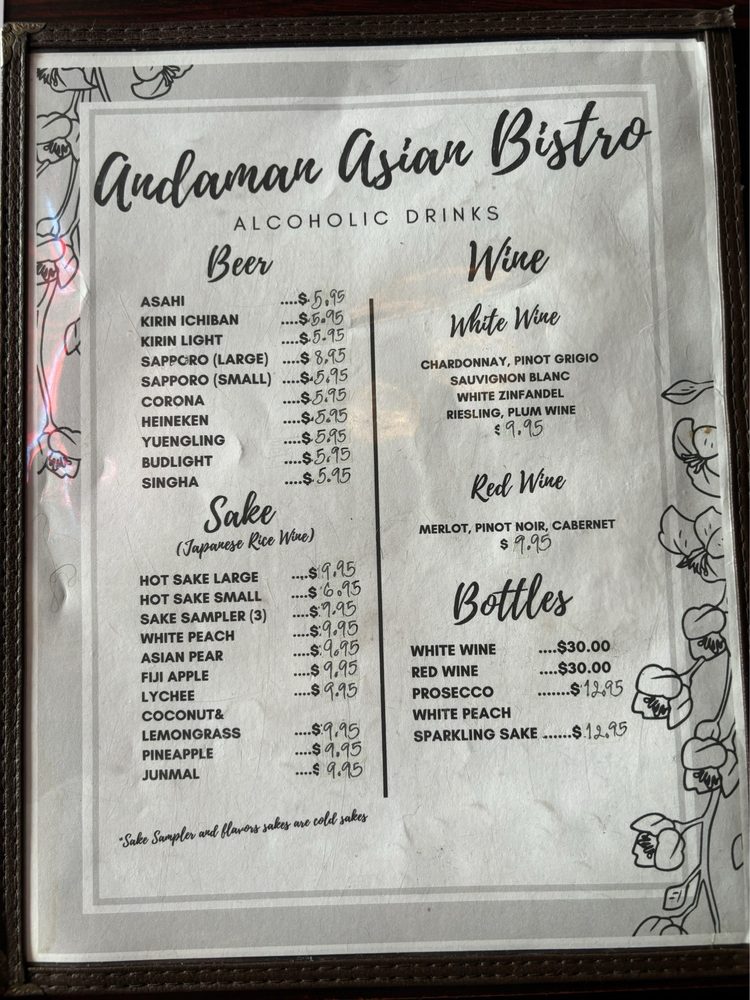 Andaman Asian Bistro
ALCOHOLIC DRINKS
Beer
ASAHI ....$ 5.95
KIRIN ICHIBAN ....$ 5.95
KIRIN LIGHT ....$ 5.95
SAPPORO (LARGE) ....$ 8.95
SAPPORO (SMALL) ....$ 5.95
CORONA ....$ 5.95
HEINEKEN ....$ 5.95
YUENGLING ....$ 5.95
BUDLIGHT ....$ 5.95
SINGHA ....$ 5.95
Sake
(Japanese Rice Wine)
HOT SAKE LARGE ....$ 9.95
HOT SAKE SMALL ....$ 6.95
SAKE SAMPLER (3) ....$ 9.95
WHITE PEACH ....$ 9.95
ASIAN PEAR ....$ 9.95
FIJI APPLE ....$ 9.95
LYCHEE ....$ 9.95
COCONUT&
LEMONGRASS ....$ 9.95
PINEAPPLE ....$ 9.95
JUNMAL ....$ 9.95
*Sake Sampler and flavors sakes are cold sakes
Wine
White Wine
CHARDONNAY, PINOT GRIGIO
SAUVIGNON BLANC
WHITE ZINFANDEL
RIESLING, PLUM WINE
$ 9.95
Red Wine
MERLOT, PINOT NOIR, CABERNET
$ 9.95
Bottles
WHITE WINE ....$30.00
RED WINE ....$30.00
PROSECCO .......$ 12.95
WHITE PEACH
SPARKLING SAKE ......$ 12.95